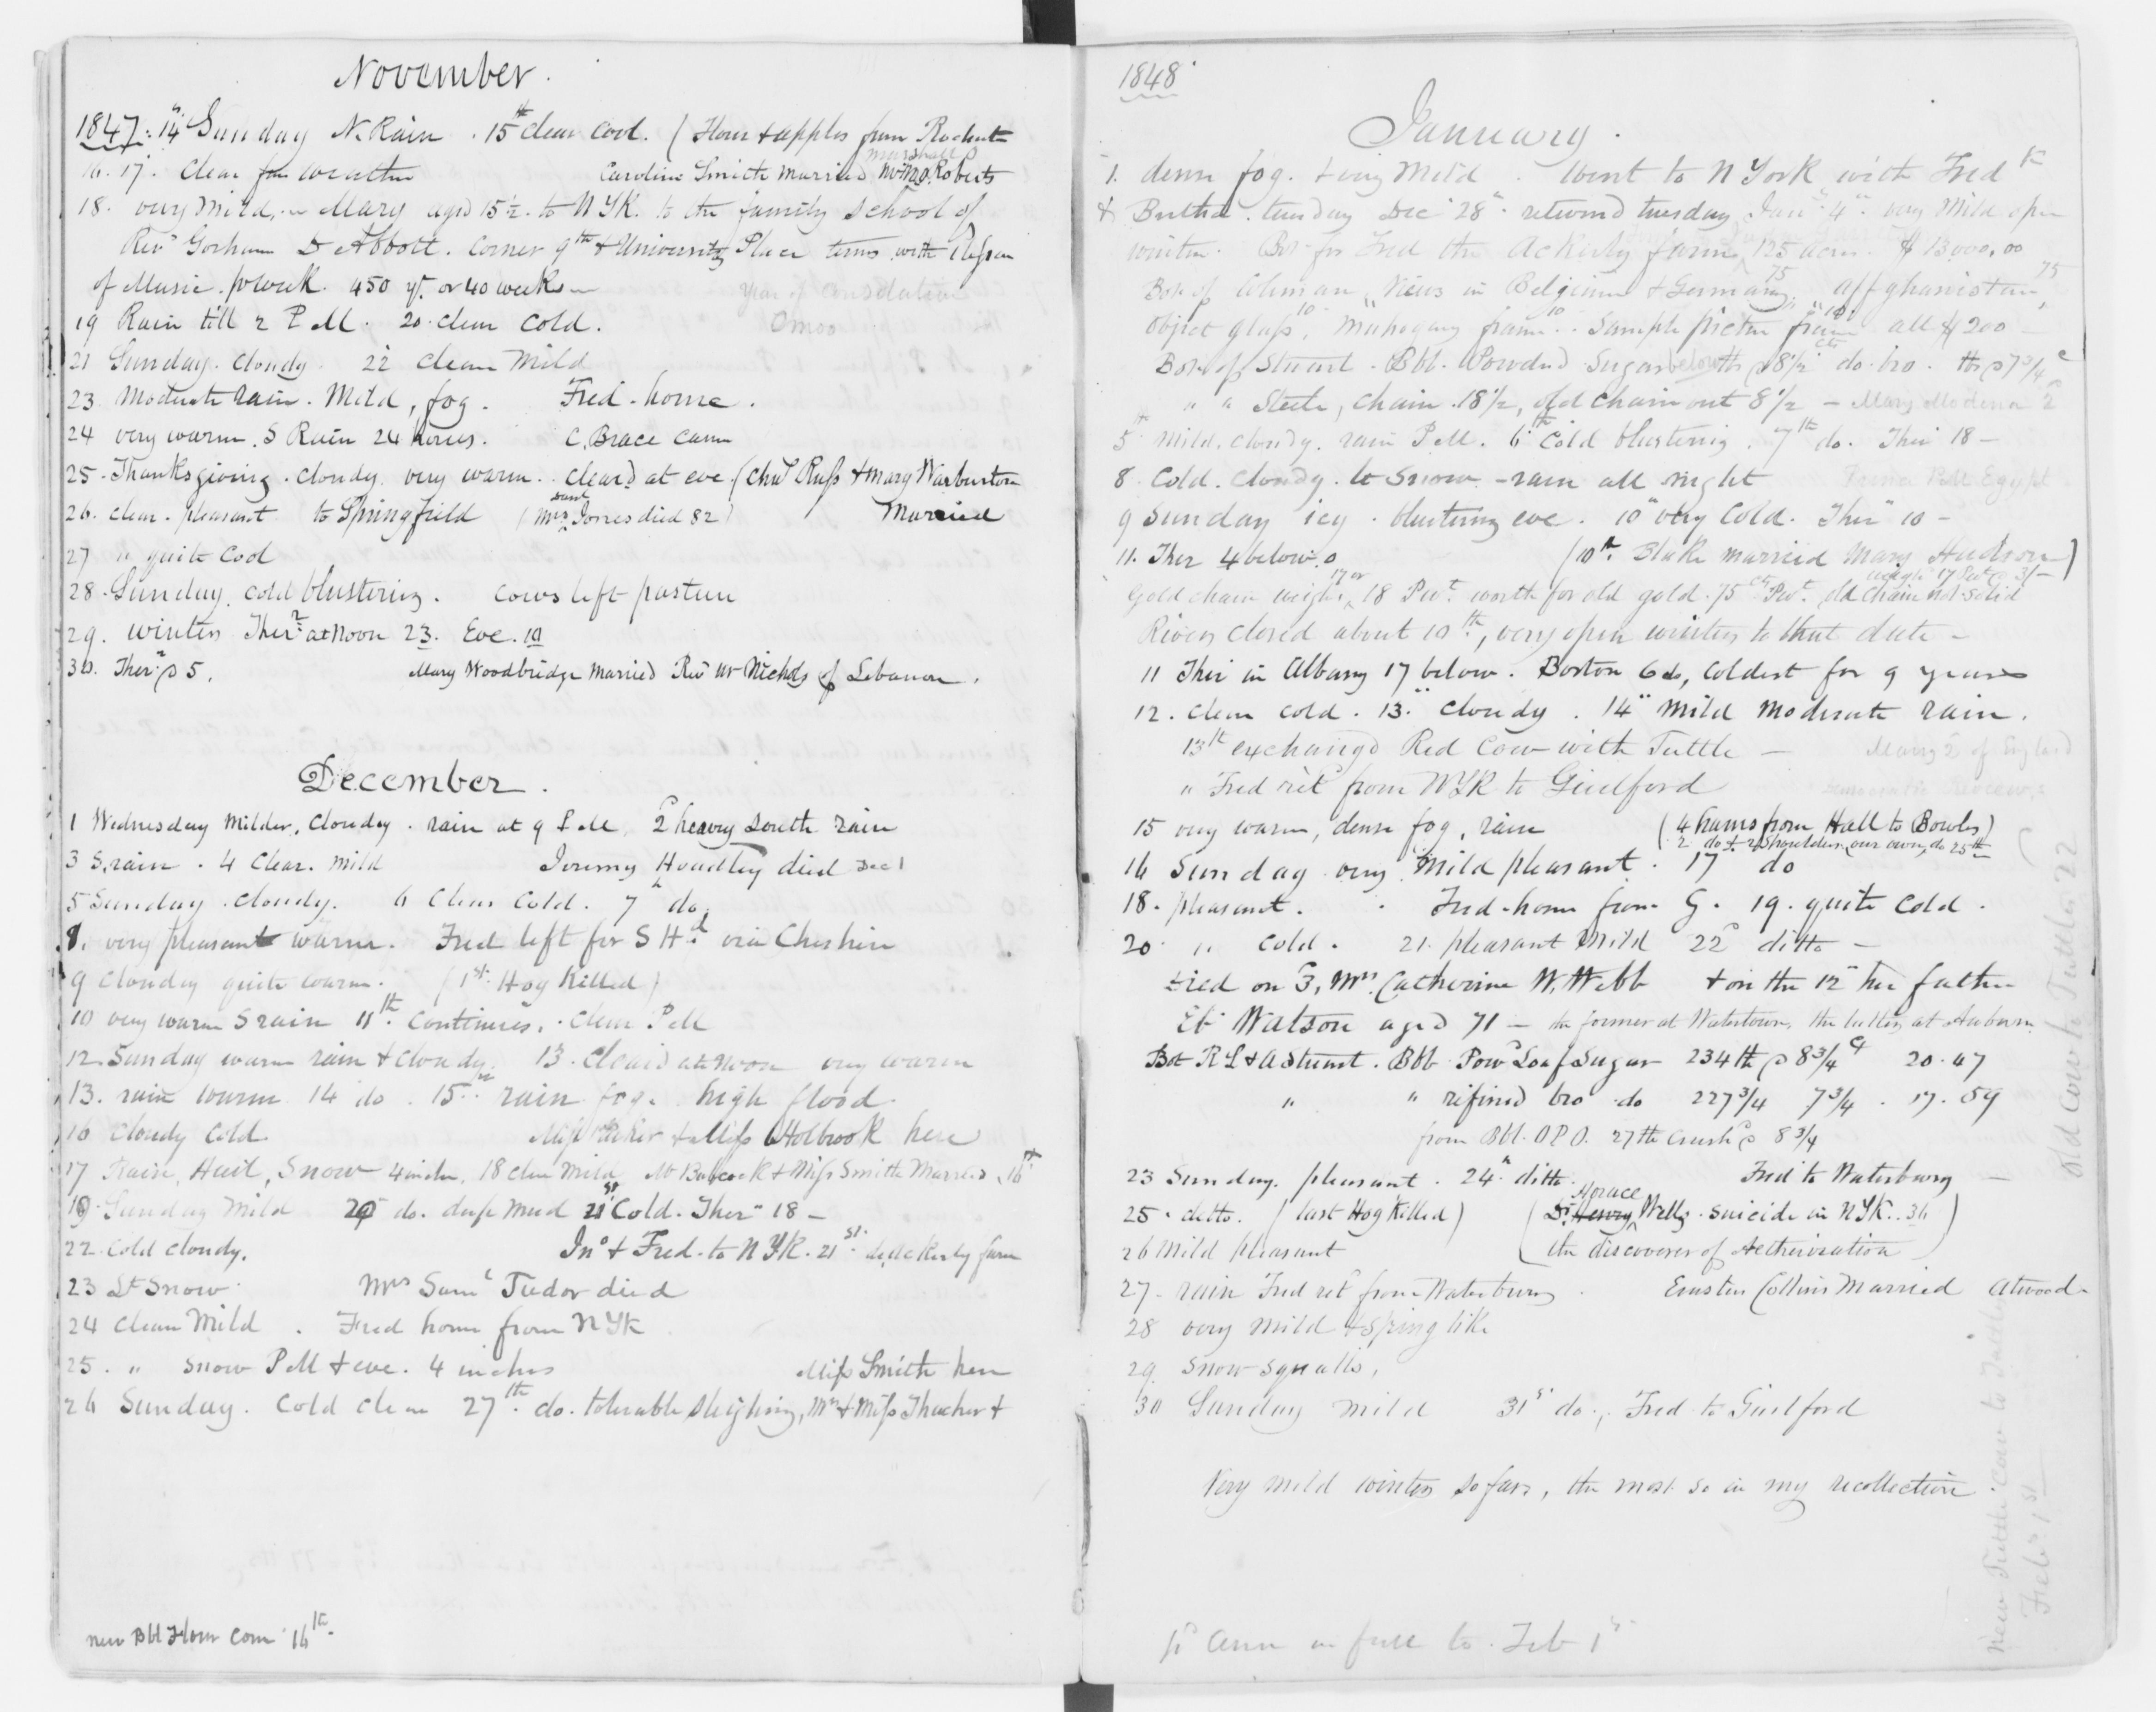 November.
1847. 14" Sunday N. Rain. 15th clear cool. (Flour & apples from
Marshall
16. 17. Clear fine weather Caroline Smith married Mr M.O. Roberts
18. very mild, Mary aged 15½ to N YK. to the family School of
Revd Gorham D Abbott. Corner 9th & University Place terms with 1 lesson
of Music pr week. 450 yr. or 40 weeks
year of consolation
19 Rain till 2 P M. 20. clear cold. Omoo
21 Sunday. Cloudy 22 clear mild
23 Moderate rain. Mild, fog. Fred. home.
24 very warm. S Rain 24 hours. C. Brace came
25. Thanksgiving. cloudy. very warm. cleard at eve (Chas Russ & Mary Warburton
26. clear. pleasant to Springfield (Mrs Saml Jones died 82) Married
27 " quite cool
28. Sunday. cold blustering. Cows left pasture
29. winter Ther. at Noon 23. Eve. 10
30. Ther @ 5. Mary Woodbridge Married Rev Mr Nichols of Lebanon.
December.
1 Wednesday milder, cloudy. rain at 9 P M, 2d heavy South rain
3 S. rain. 4 Clear. mild Jeremy Hoadley died Dec 1
5 Sunday. cloudy. 6 Clear Cold. 7" do.
8. very pleasant warm. Fred left for S Hd via Cheshire
9 cloudy quite warm. (1st Hog killed)
10 very warm S rain 11th continues. Clear P M
12. Sunday warm rain & cloudy. 13. Cleard at Noon very warm
13. rain warm 14 do. 15" rain fog. high flood.
16 cloudy cold. Miss & Miss Holbrook here
17 Rain, Hail, Snow 4 inches, 18 clear mild Mr Babcock & Miss Smith Married 16th
19. Sunday Mild 20 do. deep mud 21st Cold. Ther 18 –
22. cold cloudy. Jno & Fred. to N YK. 21st Ackerly farm
23 Lt Snow Mrs Saml Tudor died
24 Clear Mild. Fred home from N YK
25. " Snow P M & eve. 4 inches Miss Smith here
26 Sunday. Cold clear 27th. do. tolerable sleighing, Mrs & Miss Thacher &
new Bbl Flour Com 16th.
1848
January.
1. dense fog. & very Mild. Went to N York with Fredk
& Bertha. tuesday Dec 28" returned tuesday Jan 4" very mild open
winter. Bot for Fred the Ackerly farm 125 acres. $13000.00
Bot of Views in Belgium & Germany, 75 Affghanistan, 75
object glass, 10 Mahogany frame 10 Sample picture frame all $200
Bot of Stuart. Bbl. Powdered Sugar @ 8½ cts do. bro. @ 7¾ c
" " Steele, Chain. 18½, old chain out 8½ – Mary Modena
5" mild, cloudy. rain P M. 6th Cold blustering. 7th do. Ther 18 –
8 Cold. Cloudy. Lt Snow – rain all night
9 Sunday icy. blustering eve. 10" very Cold. Ther 10 –
11. Ther 4 below 0 (10th Blake married Mary Hudson)
Gold chain weighs 17 or 18 Pwt. worth for old gold. 75 cts Pwt. old chain not solid
weighs 17 Pwt @ 3/–
River closed about 10th, very open winter to that date –
11 Ther in Albany 17 below. Boston 6 do, coldest for 9 years
12. clear cold. 13" cloudy. 14" mild moderate rain.
13th exchangd Red Cow with Tuttle – Mary 2d of England
" Fred retd from N YK to Guilford Democratic Review
15 very warm, dense fog, rain (4 hams from Hall to Bowles)
2 do & 2 Shoulders our own, do 25th
16 Sunday very mild pleasant. 17 do
18. pleasant. Fred home from G. 19. quite cold.
20 " cold. 21. pleasant mild 22d ditto –
died on 3, Mrs. Catherine W. Webb & on the 12" her father
Eb. Watson aged 71 – the former at Watertown, the latter at Auburn
Bot R L & A Stuart. Bbl Powd Loaf Sugar 234 lb @ 8¾ c 20.47
" " refined bro do 227¾ 7¾. 17.59
from Bbl. O.P.O. 27 lb crush @ 8¾
23 Sunday. pleasant. 24" ditto. Fred to Waterbury
25. ditto. (last Hog killed) (Dr. Henry Horace Wells. suicide in N YK. 36
26 Mild pleasant the discoverer of Aetherization)
27. rain Fred retd from Waterbury Erastus Collins Married Atwood
28 very mild & spring like
29. Snow squalls.
30 Sunday mild 31st do., Fred to Guilford
Very mild winter so far, the most so in my recollection.
pd Ann in full to Feb 1st
old Cow to Tuttle 22
new Tuttle Cow to Tuttle
Feb. 1st